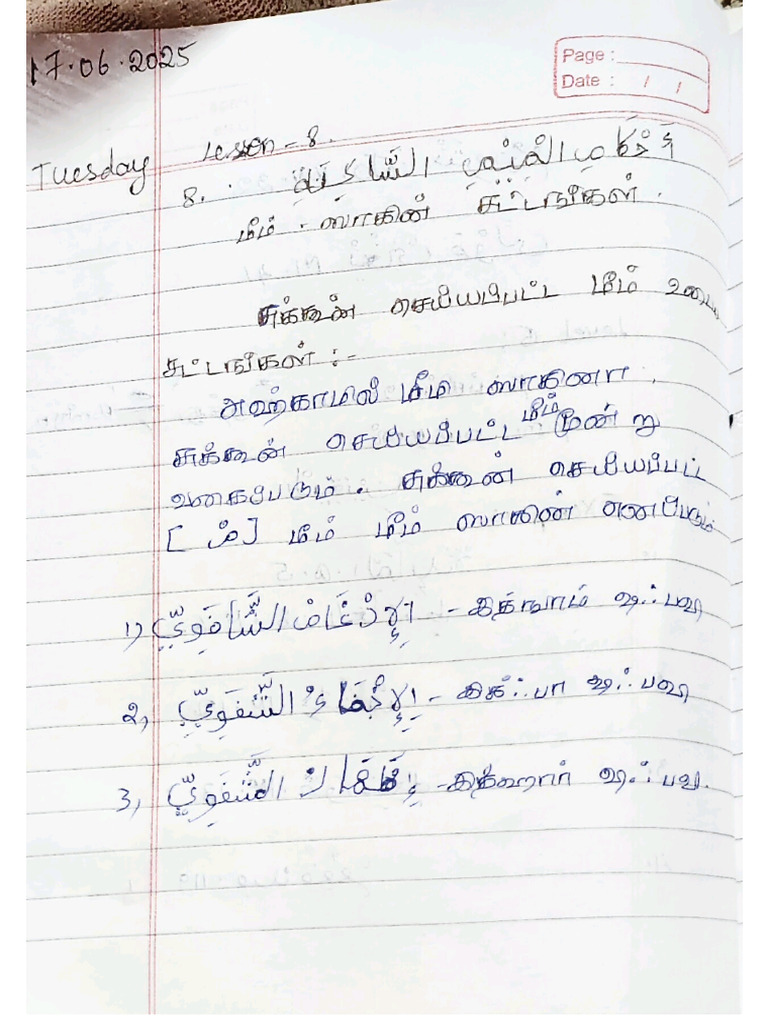 17.06.2025
Page :
Date : / /
Tuesday
Lesson - 8.
8. أَحْكَامِ الْمِيْمِ السَّاكِنَةِ
மீம் ஸாகின் சட்டங்கள்.
சுக்கூன் செய்யப்பட்ட மீம் உடைய
சட்டங்கள் :-
அஹ்காமில் மீம் ஸாகினா
சுக்கூன் செய்யப்பட்ட மீம் மூன்று
வகைப்படும். சுக்கூன் செய்யப்பட்ட
[ مْ ] மீம் மீம் ஸாகின் எனப்படும்
1) الإِدْغَامْ الشَّافَوِيِّ - இத்காம் ஷஃபவி
2) الإِخْفَاءُ الشَّفَوِيِّ - இக்ஃபா ஷஃபவி
3) الشَّفَوِيِّ - இத்ஹார் ஷஃபவி.